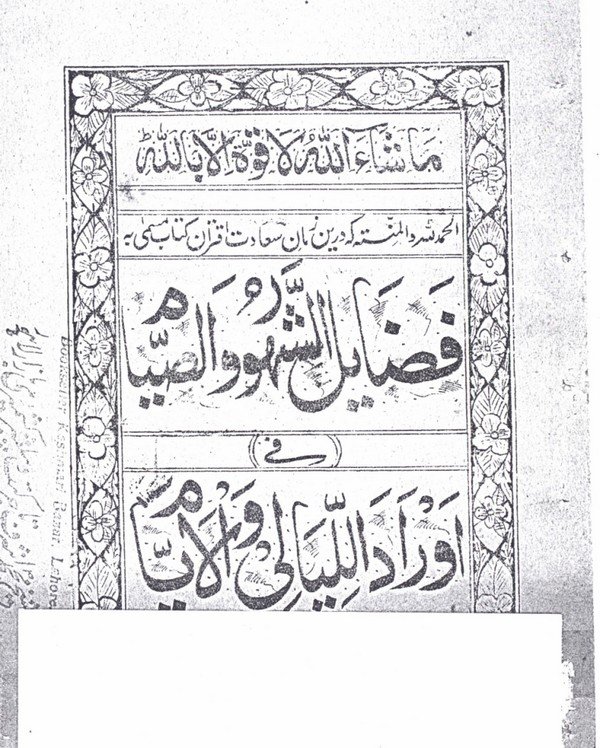 مَا شَآءَ اللّٰهُ لَا قُوَّةَ اِلَّا بِاللّٰهِ
الحمد للہ والمنتہ کہ درین زمان سعادت اقتران کتاب مسمی بہ
فَضَايِلُ الشُّهُوْرِ وَالصِّيَامِ
فے
اَوْرَادَ اللَّيَالِي وَالْاَيَّامِ
Bookseller Kashmiri Bazar Lahore